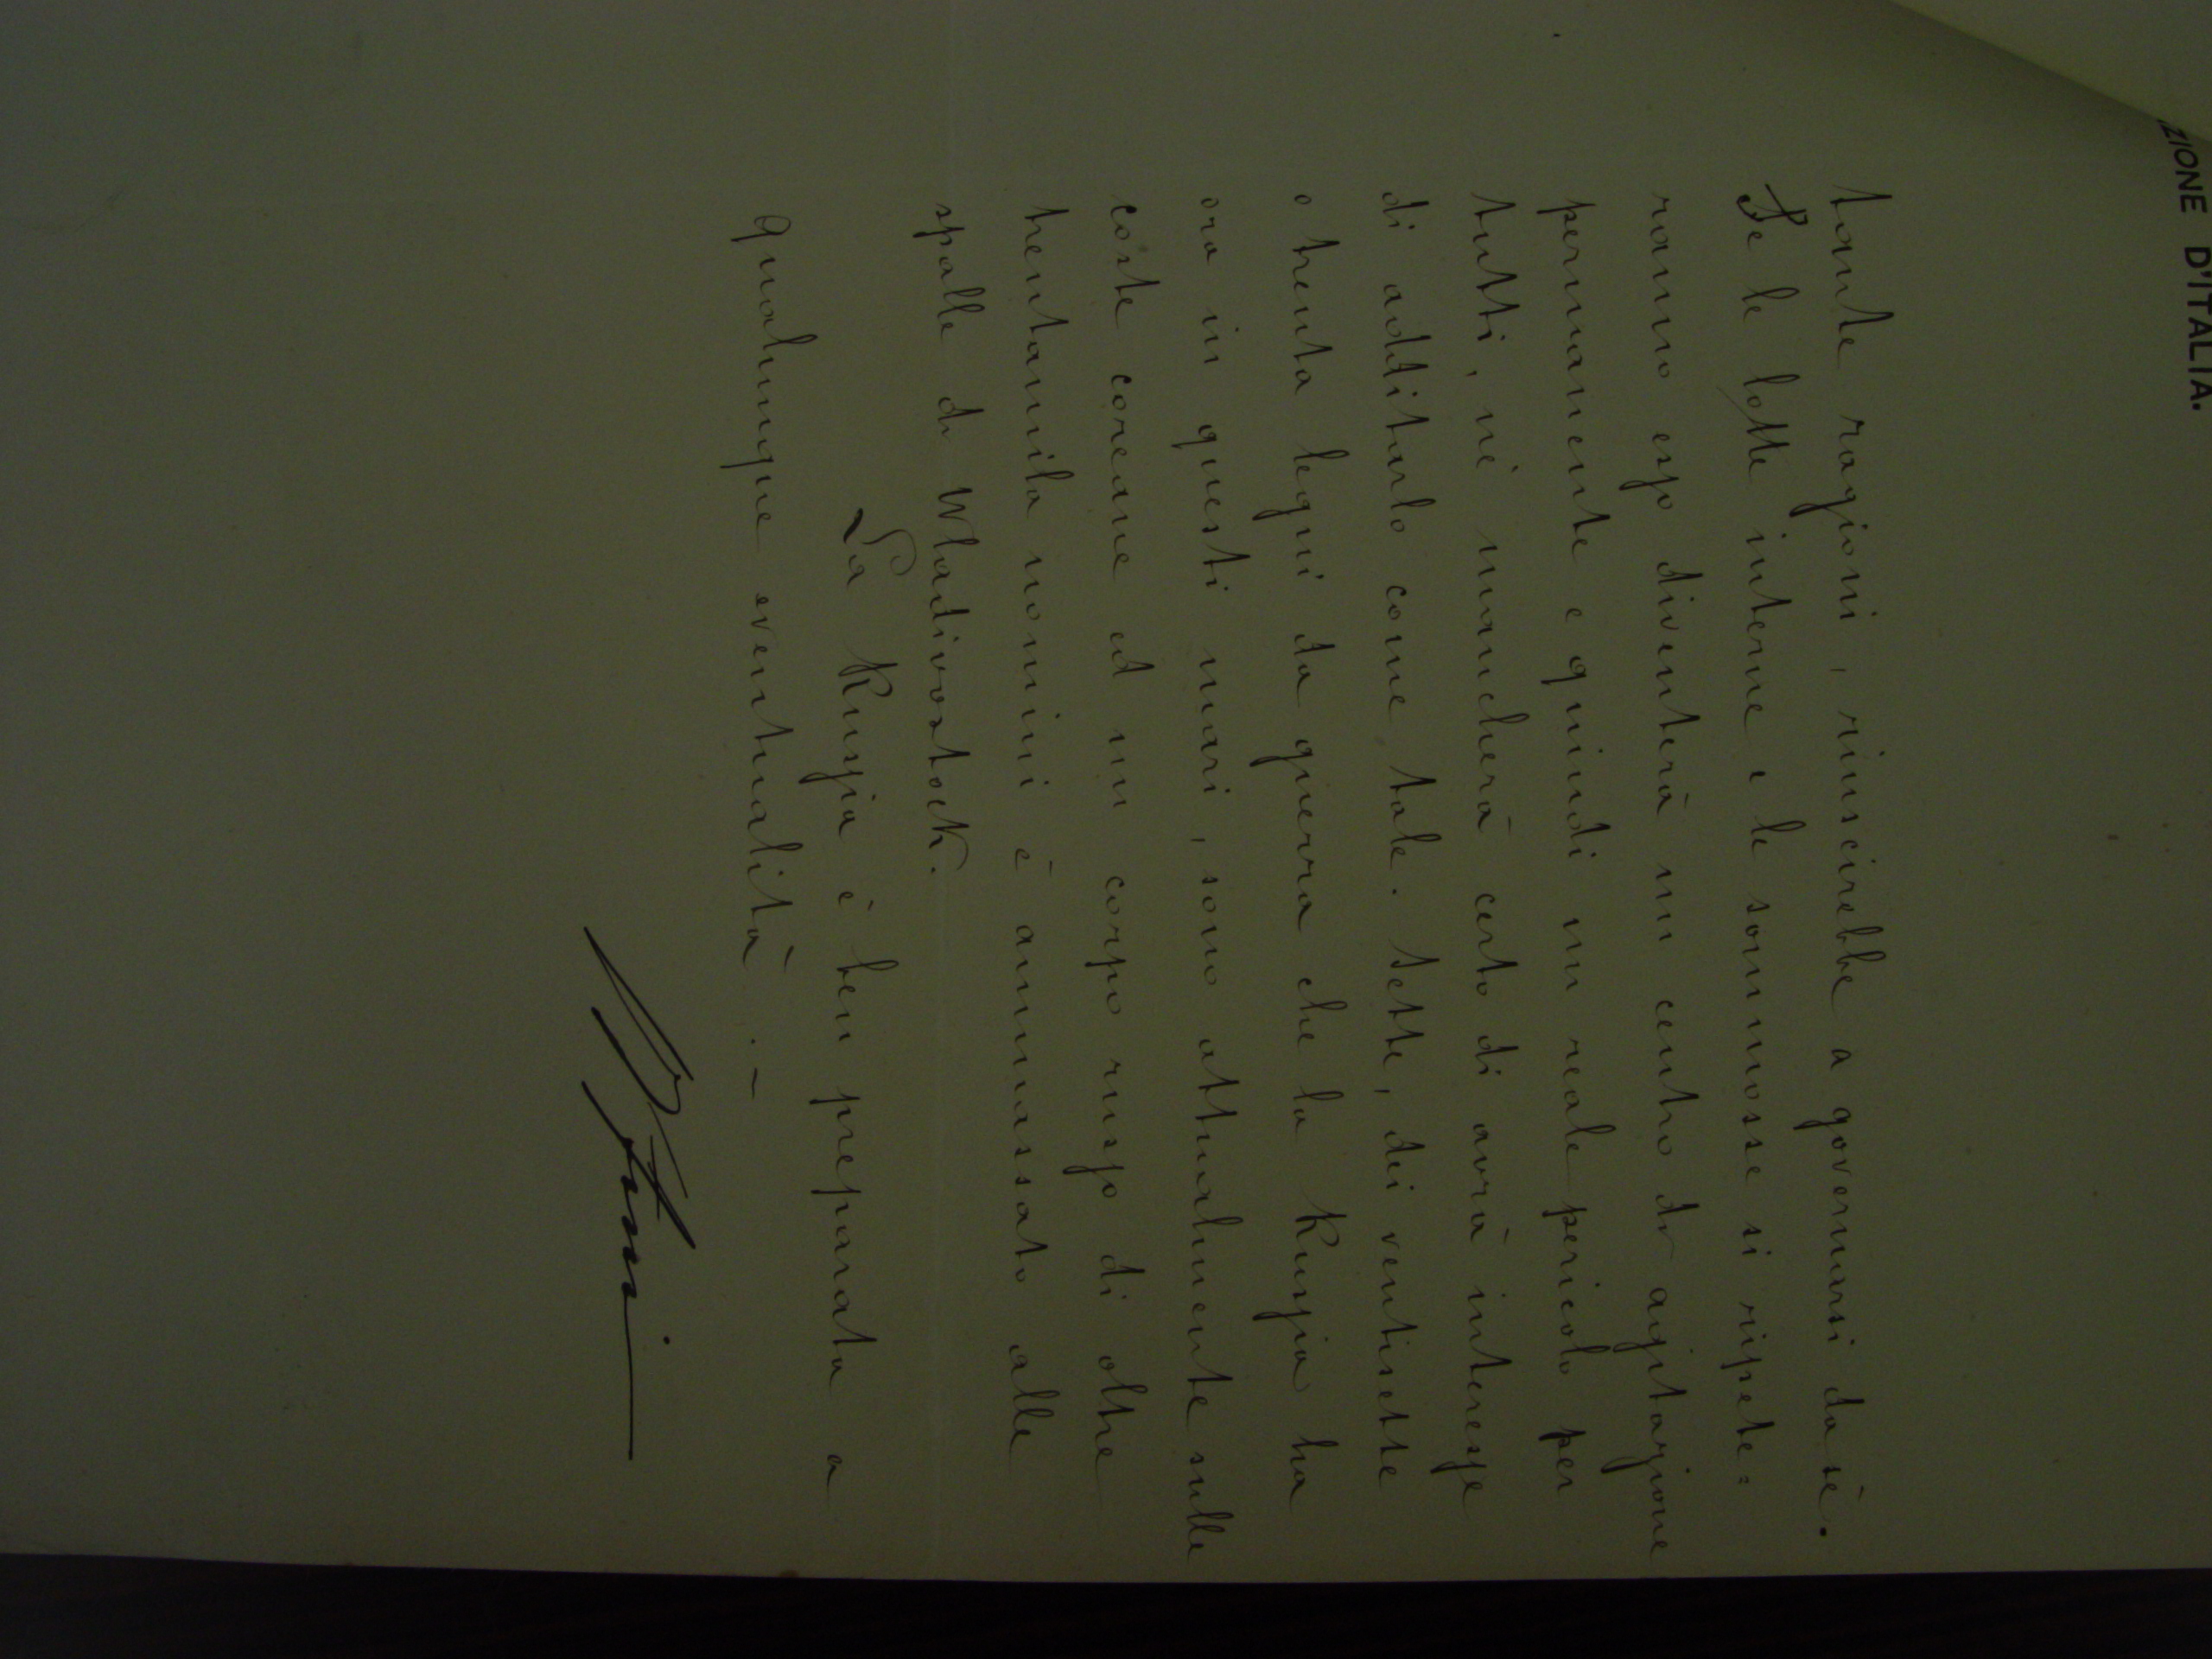 ZIONE D'ITALIA.
tante ragioni, riuscirebbe a governarsi da sè.
Se le lotte interne e le sommosse si ripete=
ranno esso diventerà un centro di agitazione
permanente e quindi un reale pericolo per
tutti, nè mancherà certo di avrà interesse
di additarlo come tale. Sette, dei ventisette
o trenta legni da guerra che la Russia ha
ora in questi mari, sono attualmente sulle
coste coreane ed un corpo russo di oltre
trentamila uomini è ammassato alle
spalle di Wladivostock.
La Russia è ben preparata a
qualunque eventualità. -